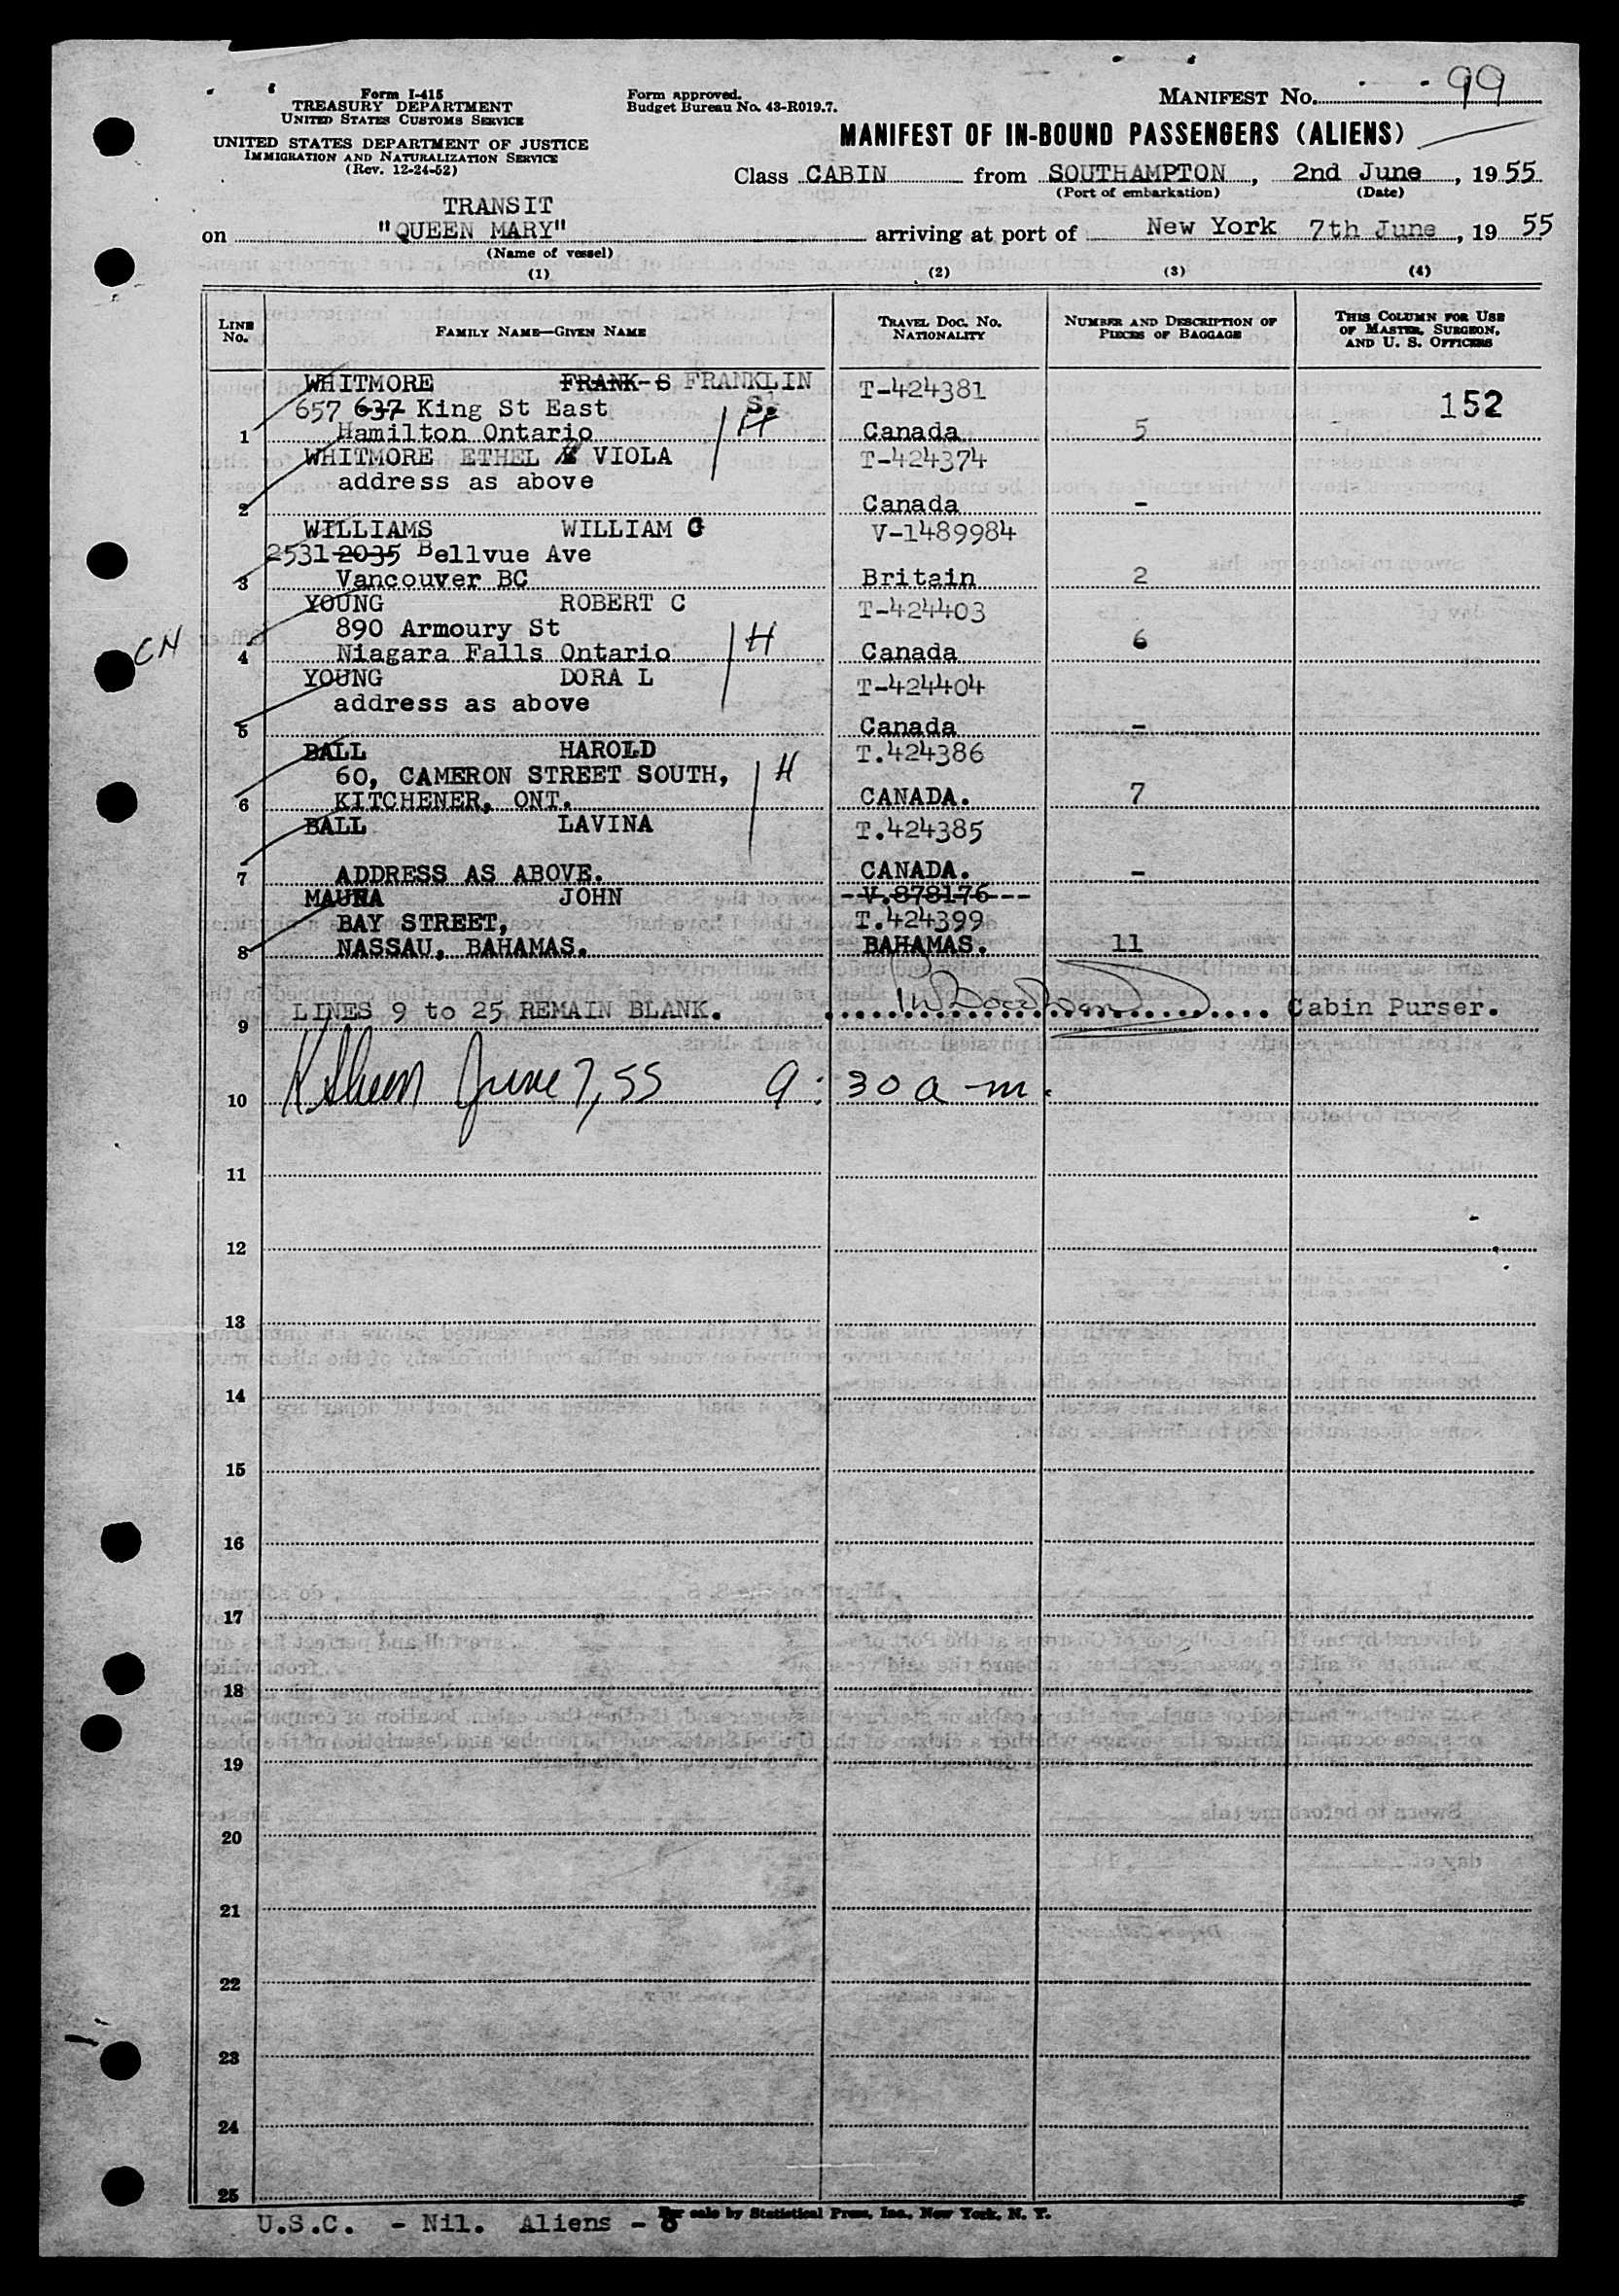 Form I-415
TREASURY DEPARTMENT
UNITED STATES CUSTOMS SERVICE
UNITED STATES DEPARTMENT OF JUSTICE
IMMIGRATION AND NATURALIZATION SERVICE
(Rev. 12-24-52)
Form approved.
Budget Bureau No. 43-R019.7.
MANIFEST NO. 99
MANIFEST OF IN-BOUND PASSENGERS (ALIENS)
Class CABIN from SOUTHAMPTON, 2nd June, 1955
(Port of embarkation) (Date)
TRANSIT
on "QUEEN MARY" arriving at port of New York 7th June, 19 55
(Name of vessel)
(1) (2) (3) (4)
LINE NO. FAMILY NAME—GIVEN NAME TRAVEL DOC. NO. NATIONALITY NUMBER AND DESCRIPTION OF PIECES OF BAGGAGE THIS COLUMN FOR USE OF MASTER, SURGEON, AND U. S. OFFICERS
WHITMORE FRANK S FRANKLIN T-424381
657 637 King St East S. 152
1 Hamilton Ontario H Canada 5
WHITMORE ETHEL VIOLA T-424374
address as above
2 Canada -
WILLIAMS WILLIAM G V-1489984
2531 2035 Bellvue Ave
3 Vancouver BC Britain 2
YOUNG ROBERT C T-424403
890 Armoury St
CN 4 Niagara Falls Ontario H Canada 6
YOUNG DORA L T-424404
address as above
5 Canada -
BALL HAROLD T.424386
60, CAMERON STREET SOUTH, H
6 KITCHENER, ONT. CANADA. 7
BALL LAVINA T.424385
7 ADDRESS AS ABOVE. CANADA. -
MAURA JOHN --V.878176---
BAY STREET, T.424399
8 NASSAU, BAHAMAS. BAHAMAS. 11
9 LINES 9 to 25 REMAIN BLANK. Cabin Purser.
10 June 7, 55 9:30 a-m.
11
12
13
14
15
16
17
18
19
20
21
22
23
24
25
For sale by Statistical Press, Inc., New York, N. Y.
U.S.C. - Nil. Aliens - 8